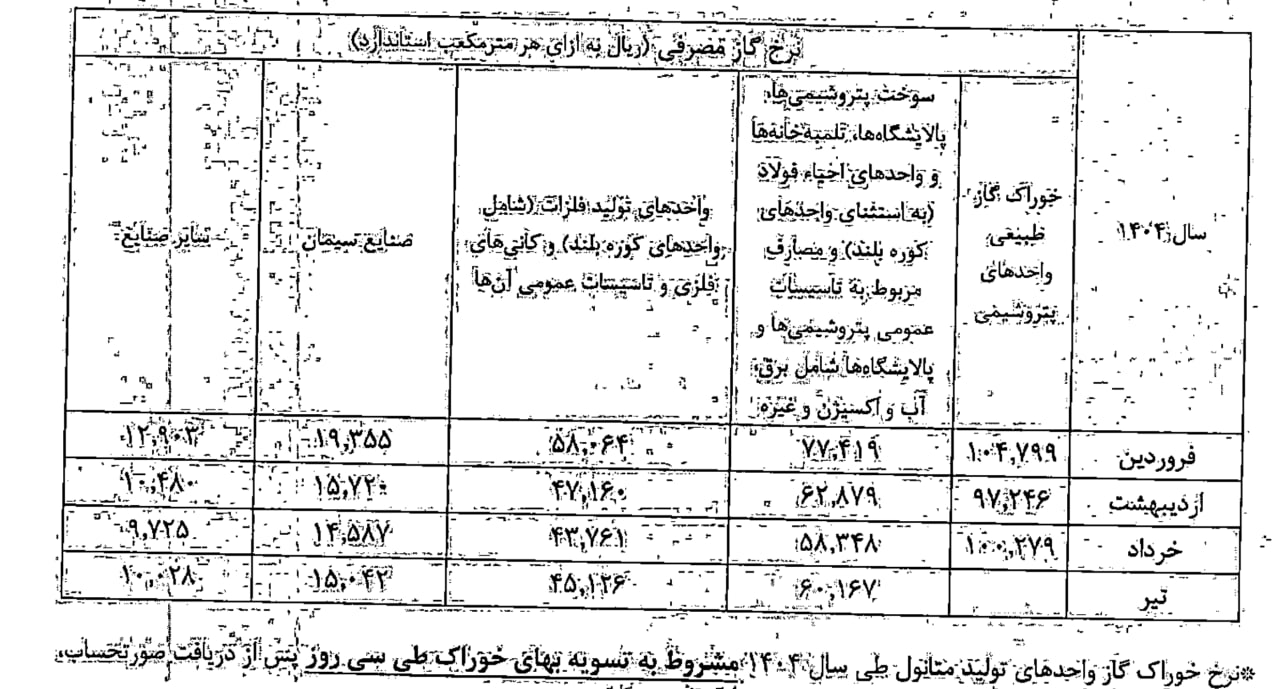 نرخ گاز مصرفی (ریال به ازای هر مترمکعب استاندارد)
سال ۱۴۰۴
خوراک گاز
طبیعی
واحدهای
پتروشیمی
سوخت پتروشیمی‌ها،
پالایشگاه‌ها، تلمبه‌خانه‌ها
و واحدهای احیاء فولاد
(به استثنای واحدهای
کوره بلند) و مصارف
مربوط به تاسیسات
عمومی پتروشیمی‌ها و
پالایشگاه‌ها شامل برق،
آب و اکسیژن و غیره
واحدهای تولید فلزات (شامل
واحدهای کوره بلند) و کانی‌های
فلزی و تاسیسات عمومی آن‌ها
صنایع سیمان
سایر صنایع
فروردین ۱۰۴,۷۹۹ ۷۷,۴۱۹ ۵۸,۰۶۴ ۱۹,۳۵۵ ۱۲,۹۰۳
اردیبهشت ۹۷,۲۴۶ ۶۲,۸۷۹ ۴۷,۱۶۰ ۱۵,۷۲۰ ۱۰,۴۸۰
خرداد ۱۰۰,۲۷۹ ۵۸,۳۴۸ ۴۳,۷۶۱ ۱۴,۵۸۷ ۹,۷۲۵
تیر ۶۰,۱۶۷ ۴۵,۱۲۶ ۱۵,۰۴۲ ۱۰,۰۲۸
*نرخ خوراک گاز واحدهای تولید متانول طی سال ۱۴۰۴ مشروط به تسویه بهای خوراک طی سی روز پس از دریافت صورتحساب،